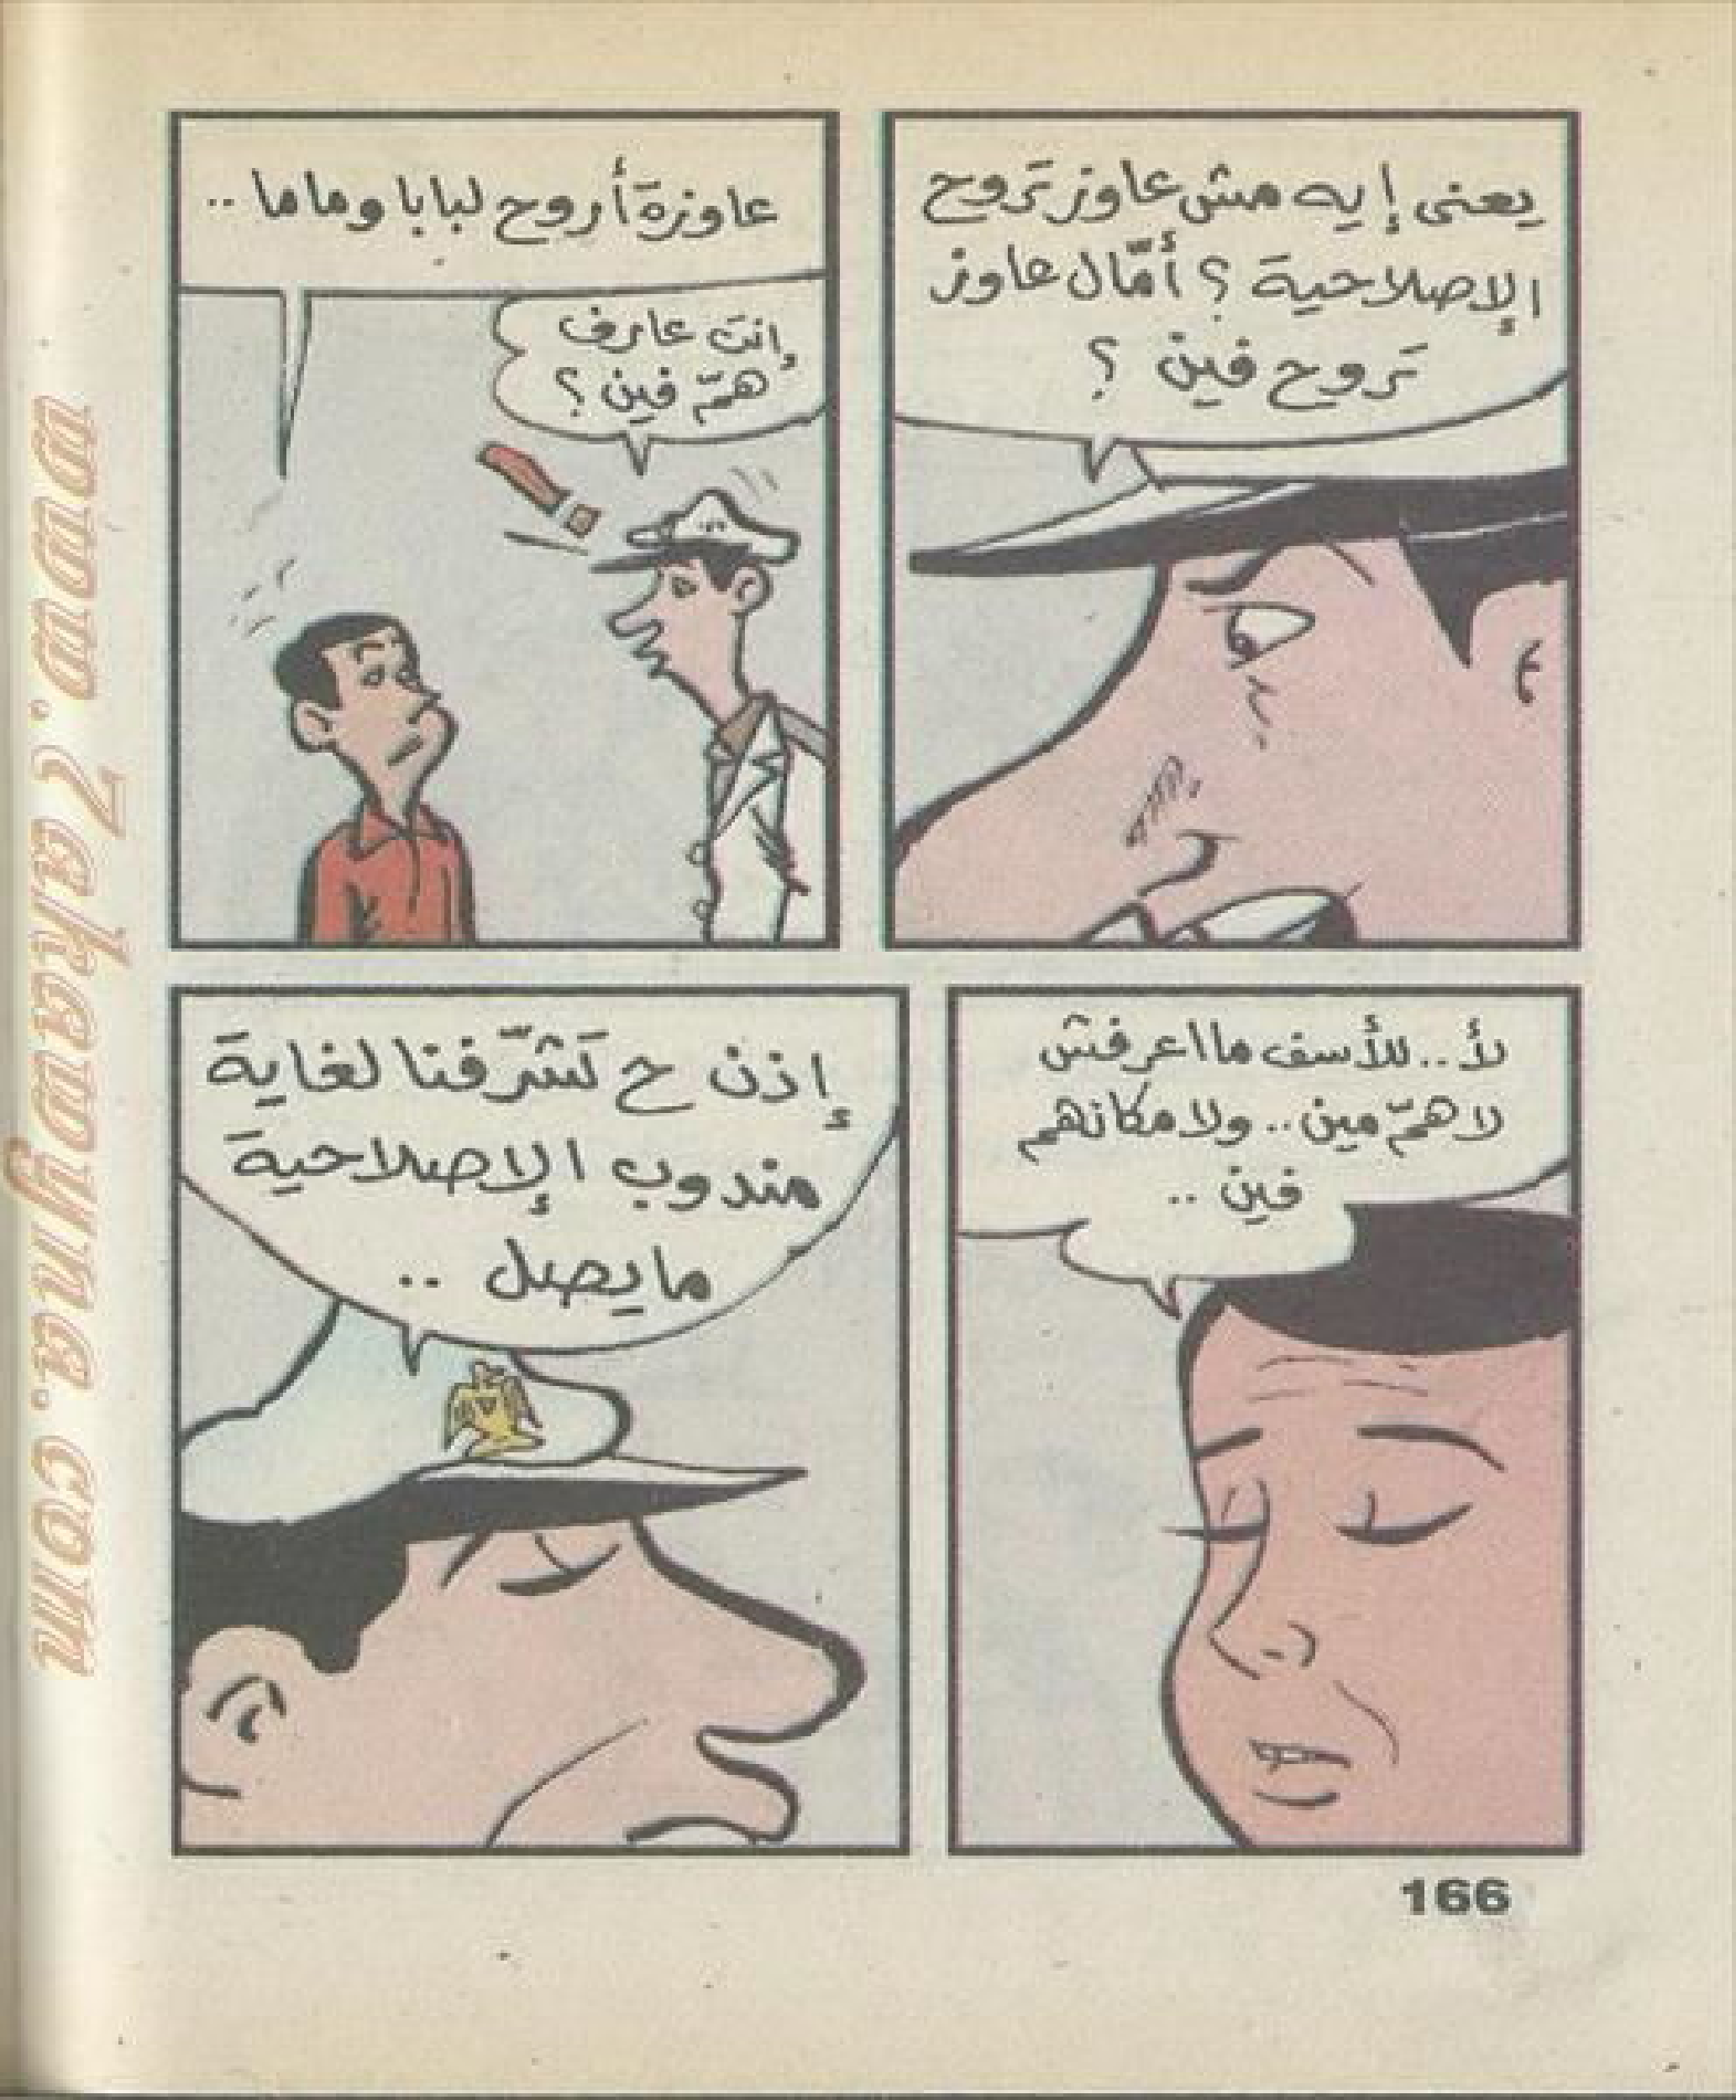 يعنى إيه مش عاوز تروح
الإصلاحية؟ أمّال عاوز
تروح فين ؟
عاوزة أروح لبابا وماما ..
إنت عارف
همّ فين ؟
لأ .. للأسف ما اعرفش
لا همّ مين .. ولا مكانهم
فين ..
إذن ح تشرّفنا لغاية
مندوب الإصلاحية
ما يصل ..
166
www.Zakaayuna.com